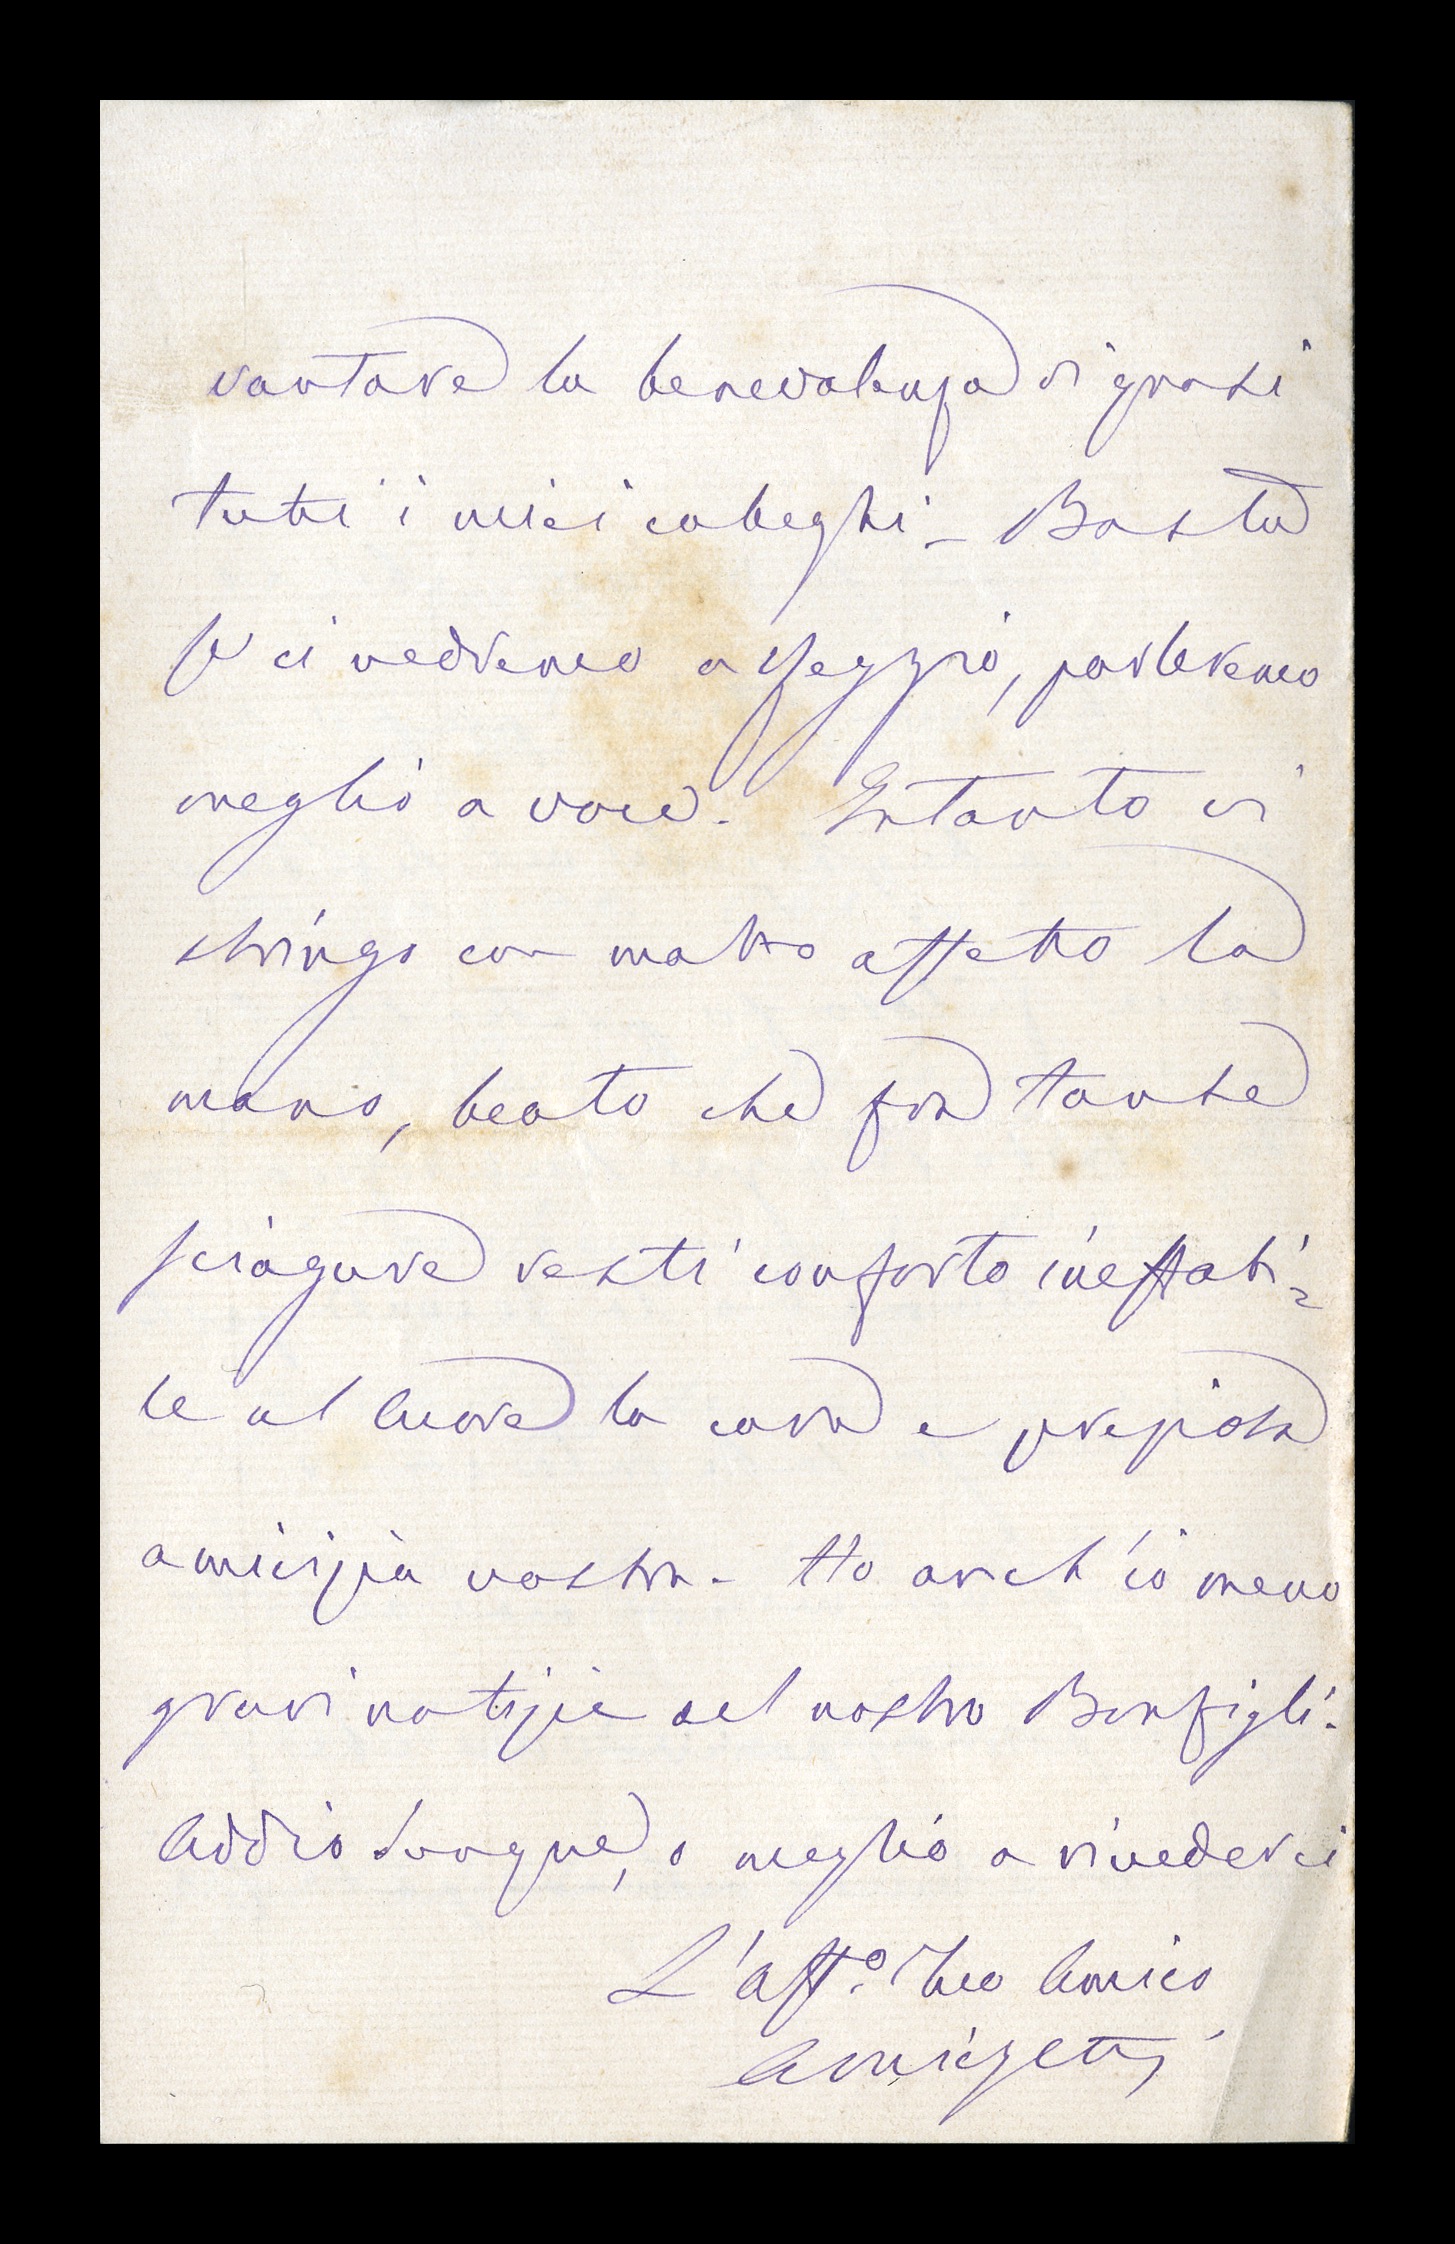 vantare la benevolenza di quasi
tutti i miei colleghi – Basta
se ci vedremo a Reggio, parleremo
meglio a voce. Intanto vi
stringo con molto affetto la
mano, beato che fra tante
sciagure resti conforto ineffabi-
le al cuore la cara e preziosa
amicizia vostra – Ho anch'io meno
gravi notizie del nostro Bonfigli.
Addio dunque, o meglio a rivederci
L'affº. Amico